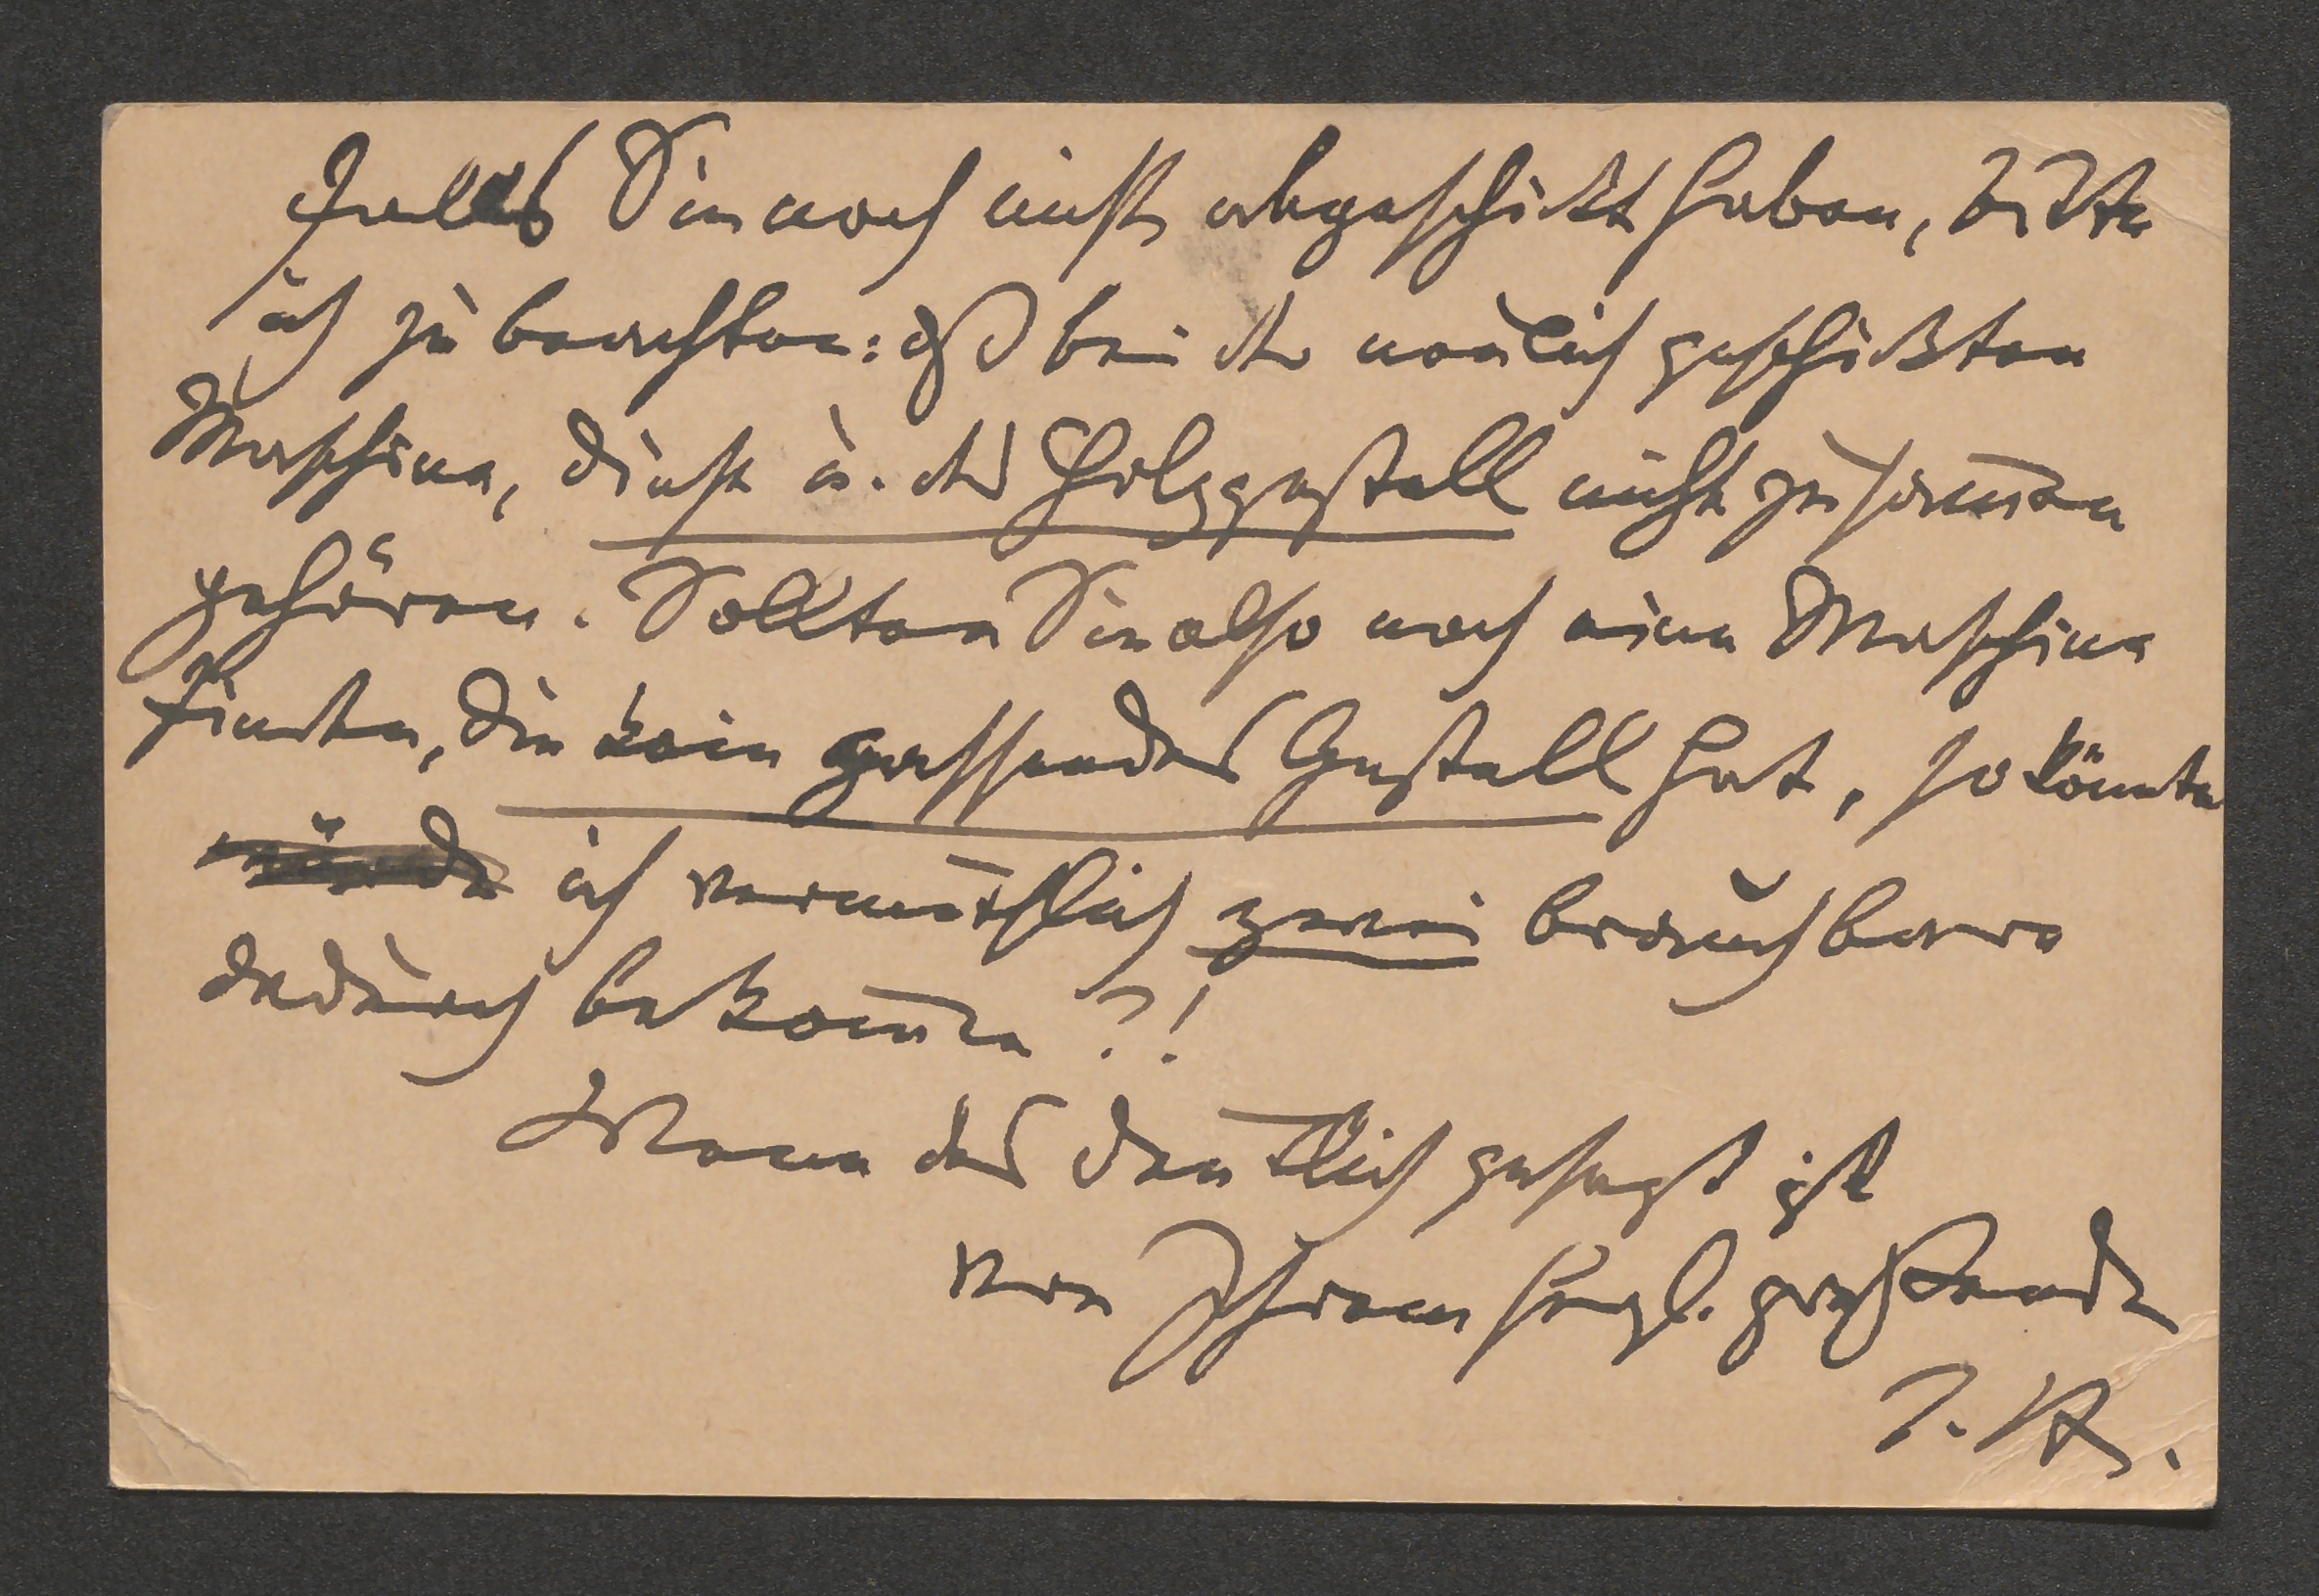 Falls Sie noch nicht abgeschickt haben, bitte
ich zu beachten: dß bei der neulich geschickten
Maschine, diese u. das Holzgestell nicht zusam̄en
gehören. Sollten Sie also noch eine Maschine
finden, die kein passendes Gestell hat, so könnte
würde ich vermuthlich zwei brauchbare
dadurch bekom̄en?!
Wenn das deutlich gesagt ist
von Ihrem grüßenden